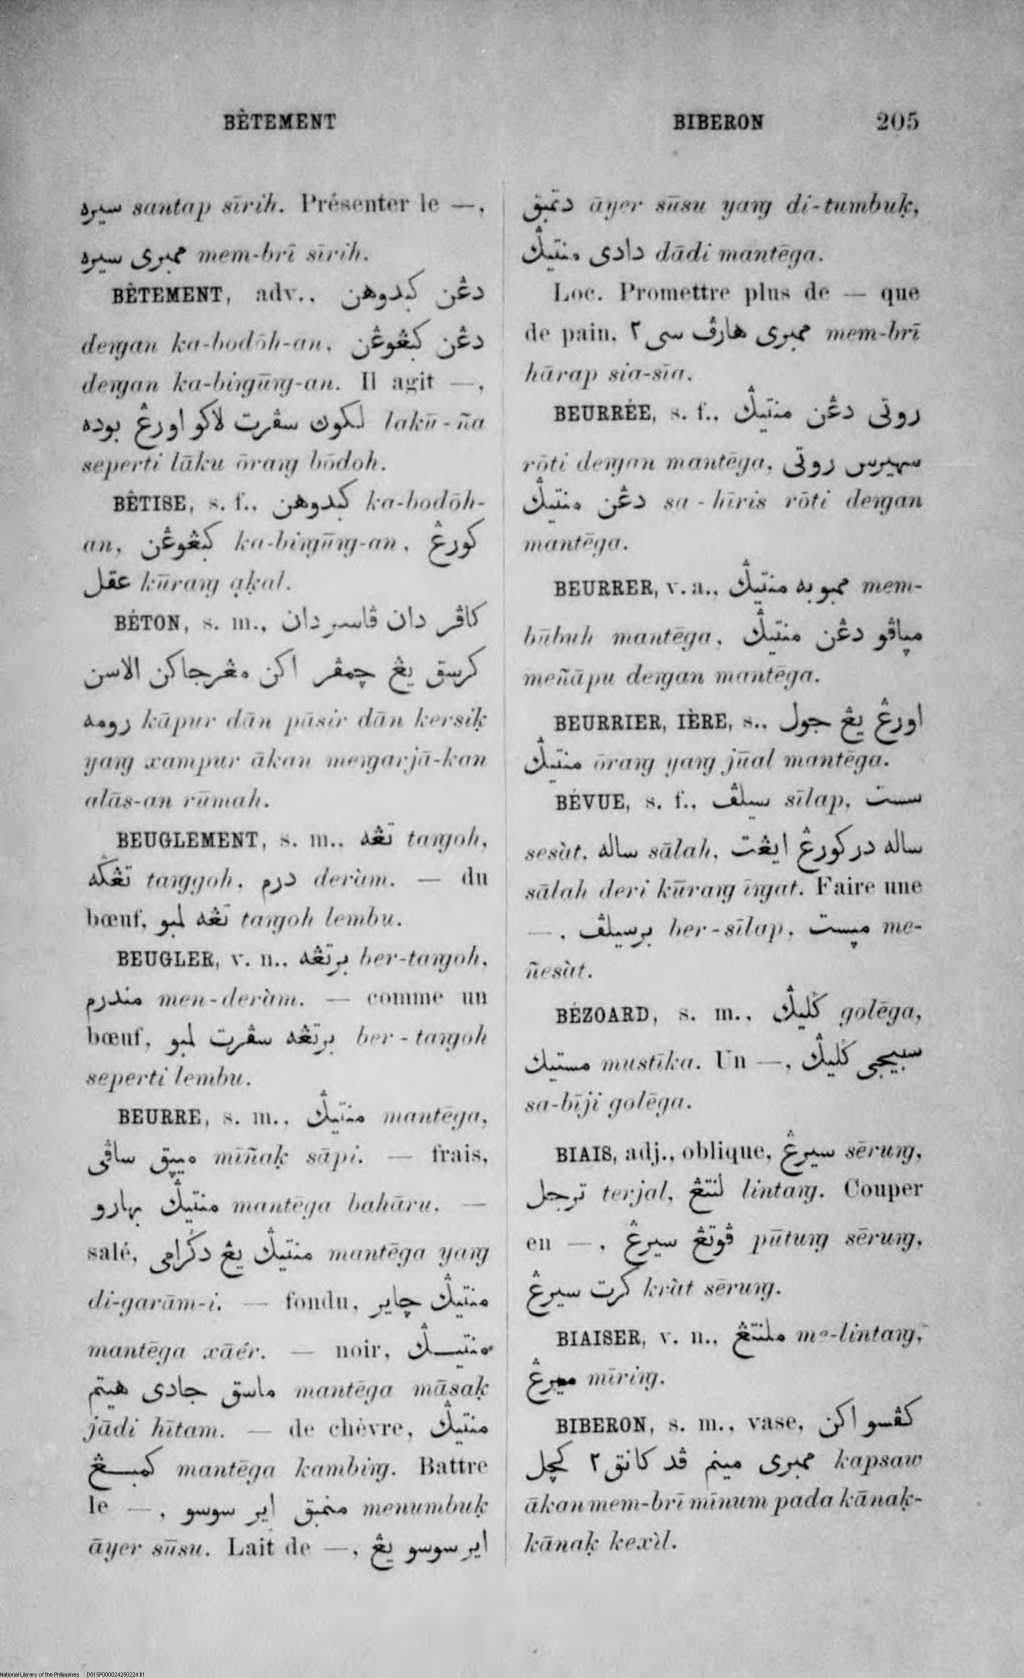 BÊTEMENT
BIBERON 205
سيره santap sīrih. Présenter le —,
ممبري سيره mem-brī sīrih.
BÊTEMENT, adv., دڠن كبدوهن
deṃgan ka-bodōh-an, دڠن كبڠوڠن
deṃgan ka-biṃgūṃg-an. Il agit —,
لكون سڤرت لاكو اورڠ بوده lakū-ña
seperti lāku ōraṃg bōdoh.
BÊTISE, s. f., كبدوهن ka-bodōh-
an, كبڠوڠن ka-biṃgūṃg-an, كورڠ
عقل kūraṃg ạḳal.
BÉTON, s. m., كاڤر دان ڤاسير دان
كرسق يڠ چمڤر اكن مڠرجاكن الاسن
رومه kāpur dān pāsir dān kersiḳ
yaṃg xampur ākan meṃgarjā-kan
alās-an rūmah.
BEUGLEMENT, s. m., تڠه taṃgoh,
تڠݢه taṃggoh, درم deràm. — du
bœuf, تڠه لمبو taṃgoh lembu.
BEUGLER, v. n., برتڠه ber-taṃgoh,
مندرم men-deràm. — comme un
bœuf, برتڠه سڤرت لمبو ber-taṃgoh
seperti lembu.
BEURRE, s. m., منتيݢ mantēga,
مييق ساڤي mīñaḳ sāpi. — frais,
منتيݢ بهارو mantēga bahāru. —
salé, منتيݢ يڠ دݢرامي mantēga yaṃg
di-garām-i. — fondu, منتيݢ چاير
mantēga xāér. — noir, منتيݢ
ماسق جادي هيتم mantēga māsaḳ
jādi hītam. — de chèvre, منتيݢ
كمبيڠ mantēga kambiṃg. Battre
le —, منمبق اير سوسو menumbuḳ
āyer sūsu. Lait de —, اير سوسو يڠ
دتمبق āyer sūsu yaṃg di-tumbuḳ,
دادي منتيݢ dādi mantēga.
Loc. Promettre plus de — que
de pain, ممبري هارڤ سي٢ mem-brī
hārap sia-sīa.
BEURRÉE, s. f., روتي دڠن منتيݢ
rōti deṃgan mantēga, سهيرس روتي
دڠن منتيݢ sa-hīris rōti deṃgan
mantēga.
BEURRER, v. a., ممبوبه منتيݢ mem-
būbuh mantēga, مياڤو دڠن منتيݢ
meñāpu deṃgan mantēga.
BEURRIER, IÈRE, s., اورڠ يڠ جول
منتيݢ ōraṃg yaṃg jūal mantēga.
BÉVUE, s. f., سيلڤ sīlap, سست
sesàt, ساله sālah, ساله دركورڠ ايڠت
sālah deri kūraṃg īṃgat. Faire une
—, برسيلڤ ber-sīlap, ميست me-
ñesàt.
BÉZOARD, s. m., ݢليݢ golēga,
مستيك mustīka. Un —, سبيجي ݢليݢ
sa-bīji golēga.
BIAIS, adj., oblique, سيرڠ sēruṃg,
ترجل terjal, لنتڠ lintaṃg. Couper
en —, ڤوتڠ سيرڠ pūtuṃg sēruṃg,
كرت سيرڠ kràt sēruṃg.
BIAISER, v. n., ملنتڠ me-lintaṃg,
ميرڠ mīriṃg.
BIBERON, s. m., vase, كڤسو اكن
ممبري مينم ڤد كانق٢ كچل kapsaw
ākan mem-brī mīnum pada kānaḳ-
kānaḳ kexìl.
National Library of the Philippines